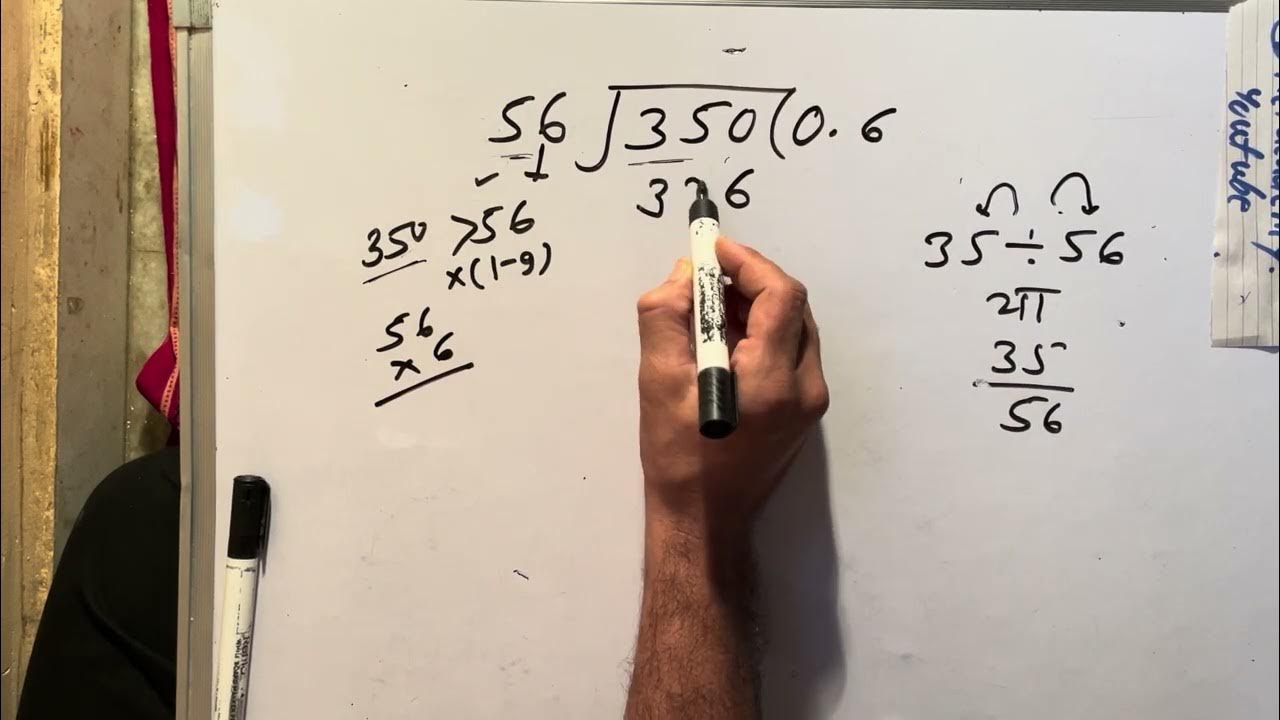 56 350 ( 0.6
336
350 > 56
×(1-9)
56
× 6
35 ÷ 56
35
56
Youtube